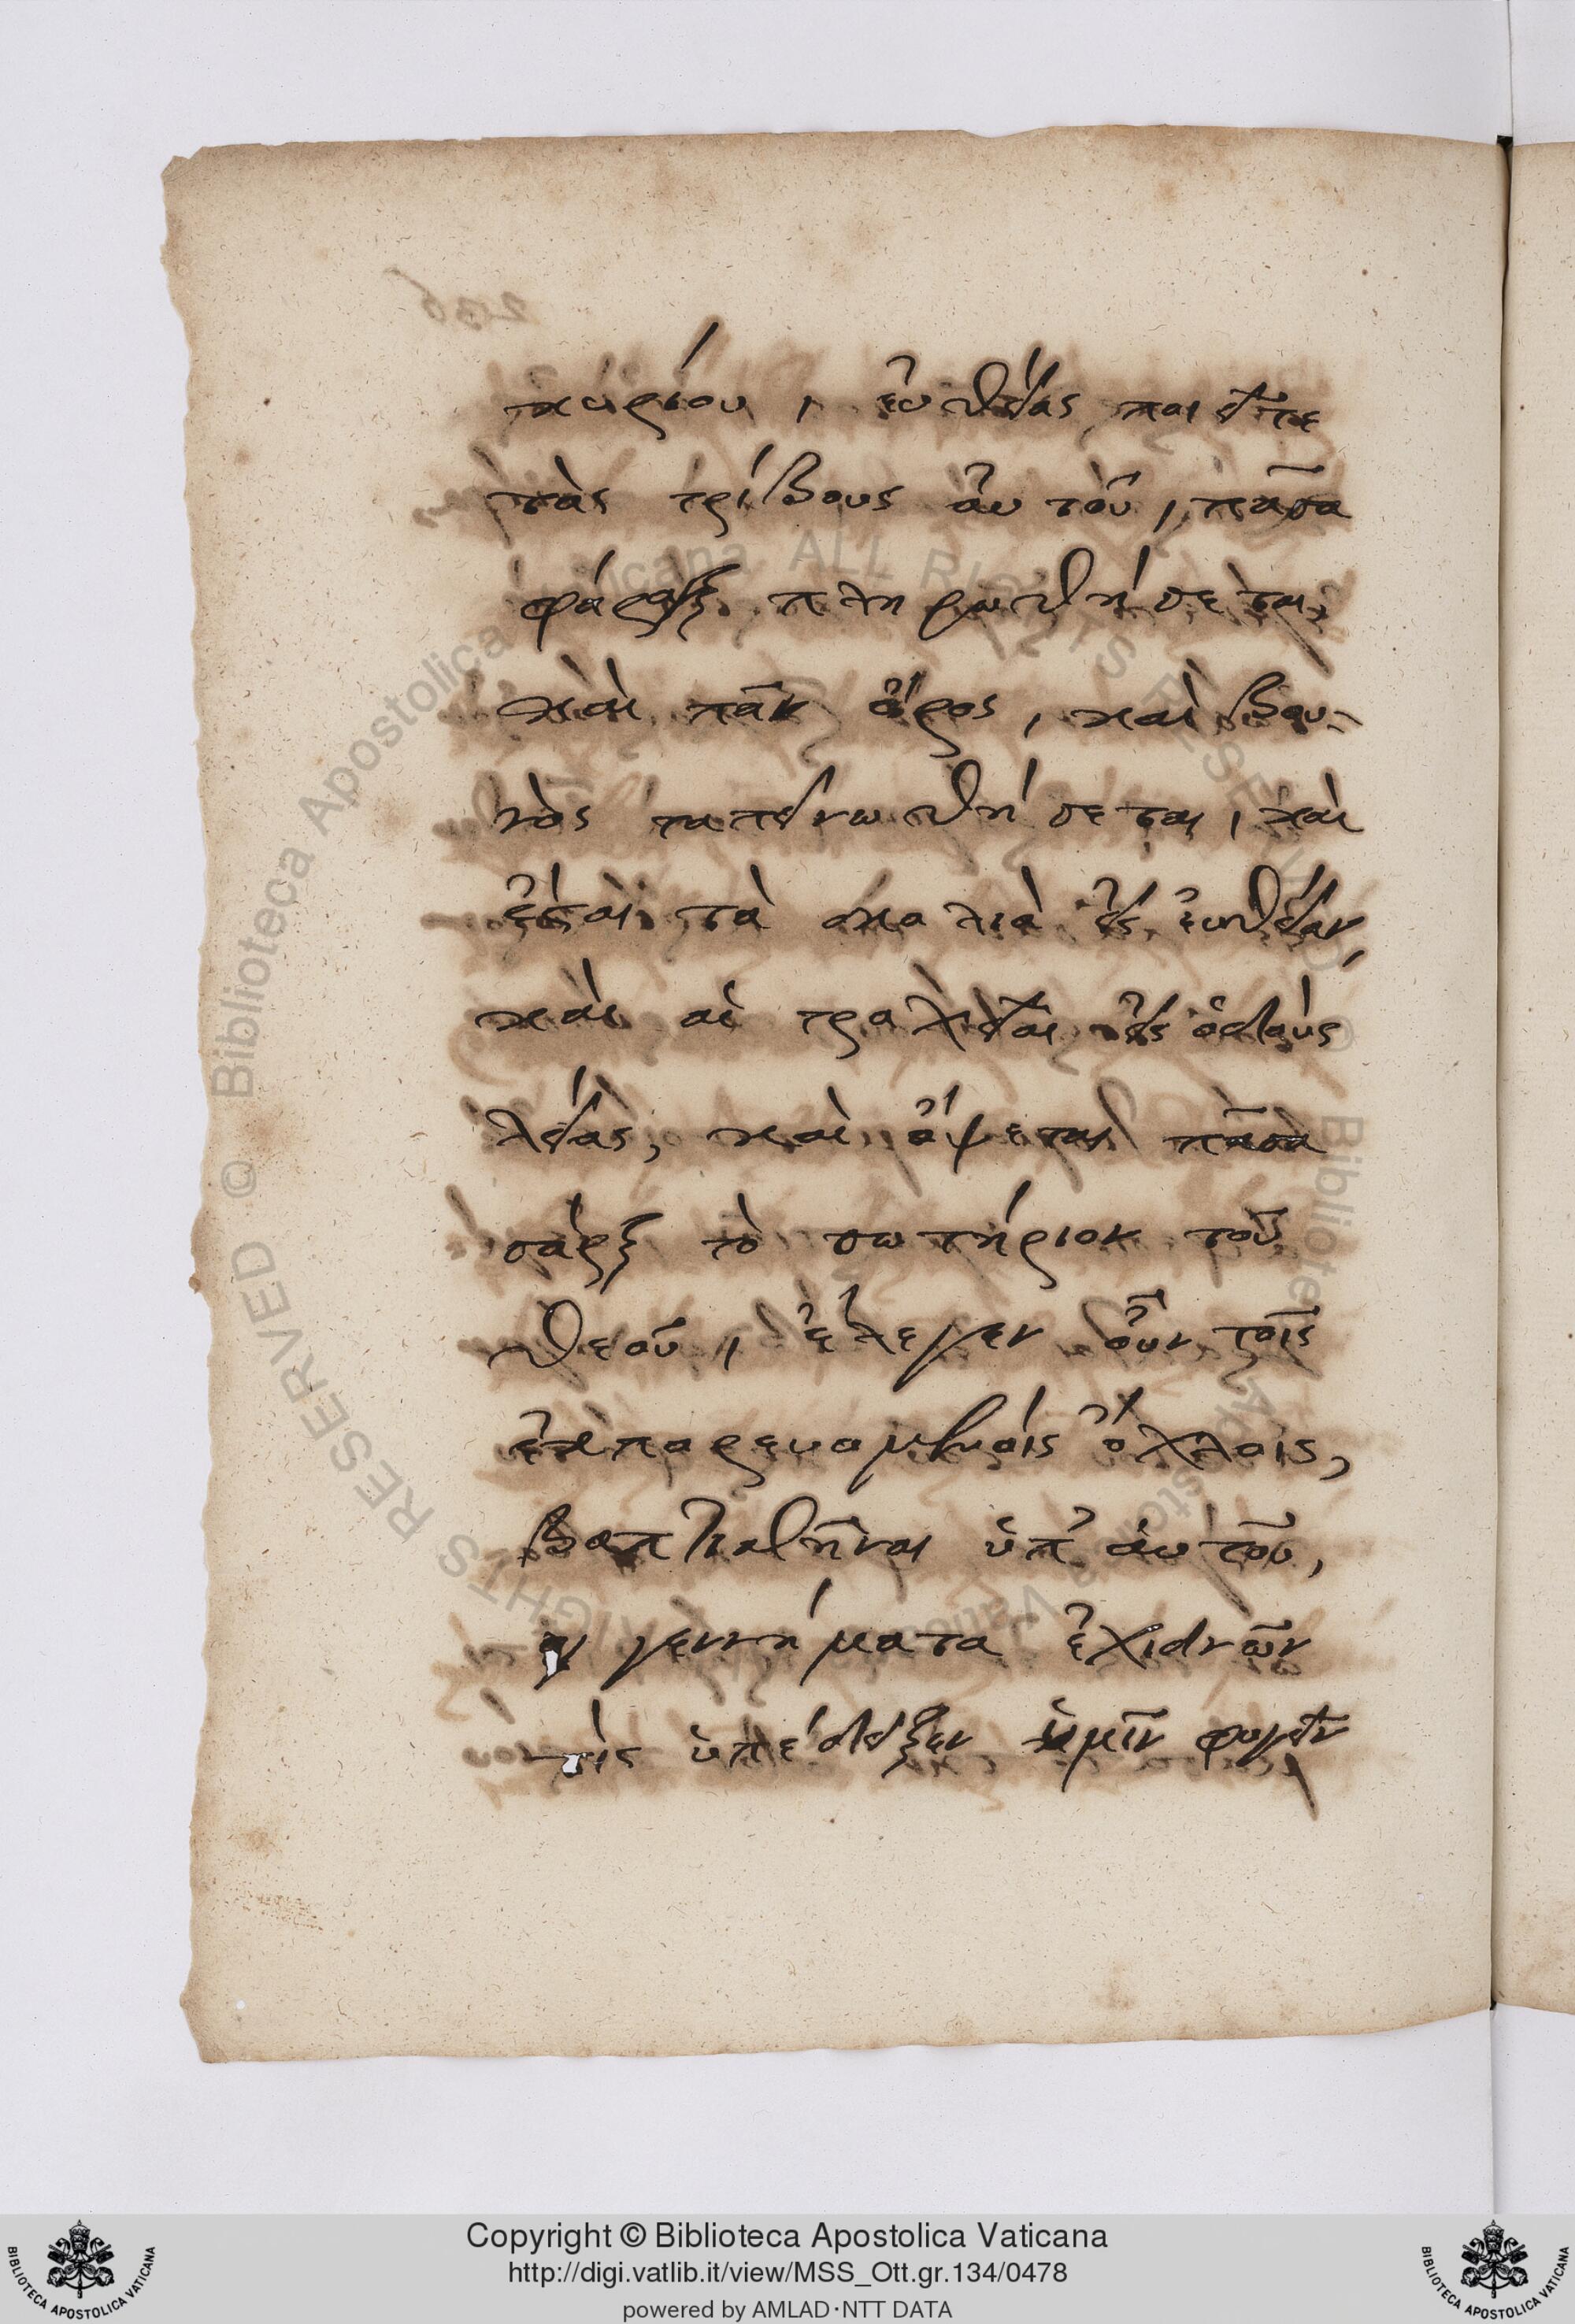 κυρίου, ἐυθείας ποιεῖτε
τὰς τρίβους ἀυτοῦ, πᾶσα
φάραγξ πληρωθήσεται,
καὶ πᾶν ὄρος, καὶ βου-
νὸς ταπεινωθήσεται, καὶ
ἔσται τὰ σκολιὰ εἰς ἐυθείαν,
καὶ αἱ τραχεῖαι εἰς ὁδοὺς
λείας, καὶ ὄψεται πᾶσα
σὰρξ τὸ σωτήριον τοῦ
θεοῦ, ἔλεγεν οὖν τοῖς
ἐκπορευομένοις ὄχλοις,
βαπτισθῆναι ὑπ' ἀυτοῦ,
γεννήματα ἐχιδνῶν
τίς ὑπέδειξεν ὑμῖν φυγεῖν
Biblioteca Apostolica Vaticana ALL RIGHTS RESERVED ©
Copyright © Biblioteca Apostolica Vaticana
http://digi.vatlib.it/view/MSS_Ott.gr.134/0478
powered by AMLAD·NTT DATA
BIBLIOTECA APOSTOLICA VATICANA
BIBLIOTECA APOSTOLICA VATICANA